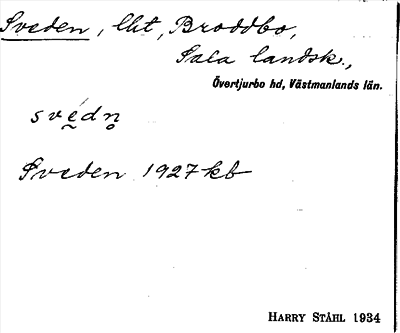 Sveden, lht, Broddbo,
Sala landsk.,
Övertjurbo hd, Västmanlands län.
svę́dn̥
Sveden 1927 kb
HARRY STÅHL 1934